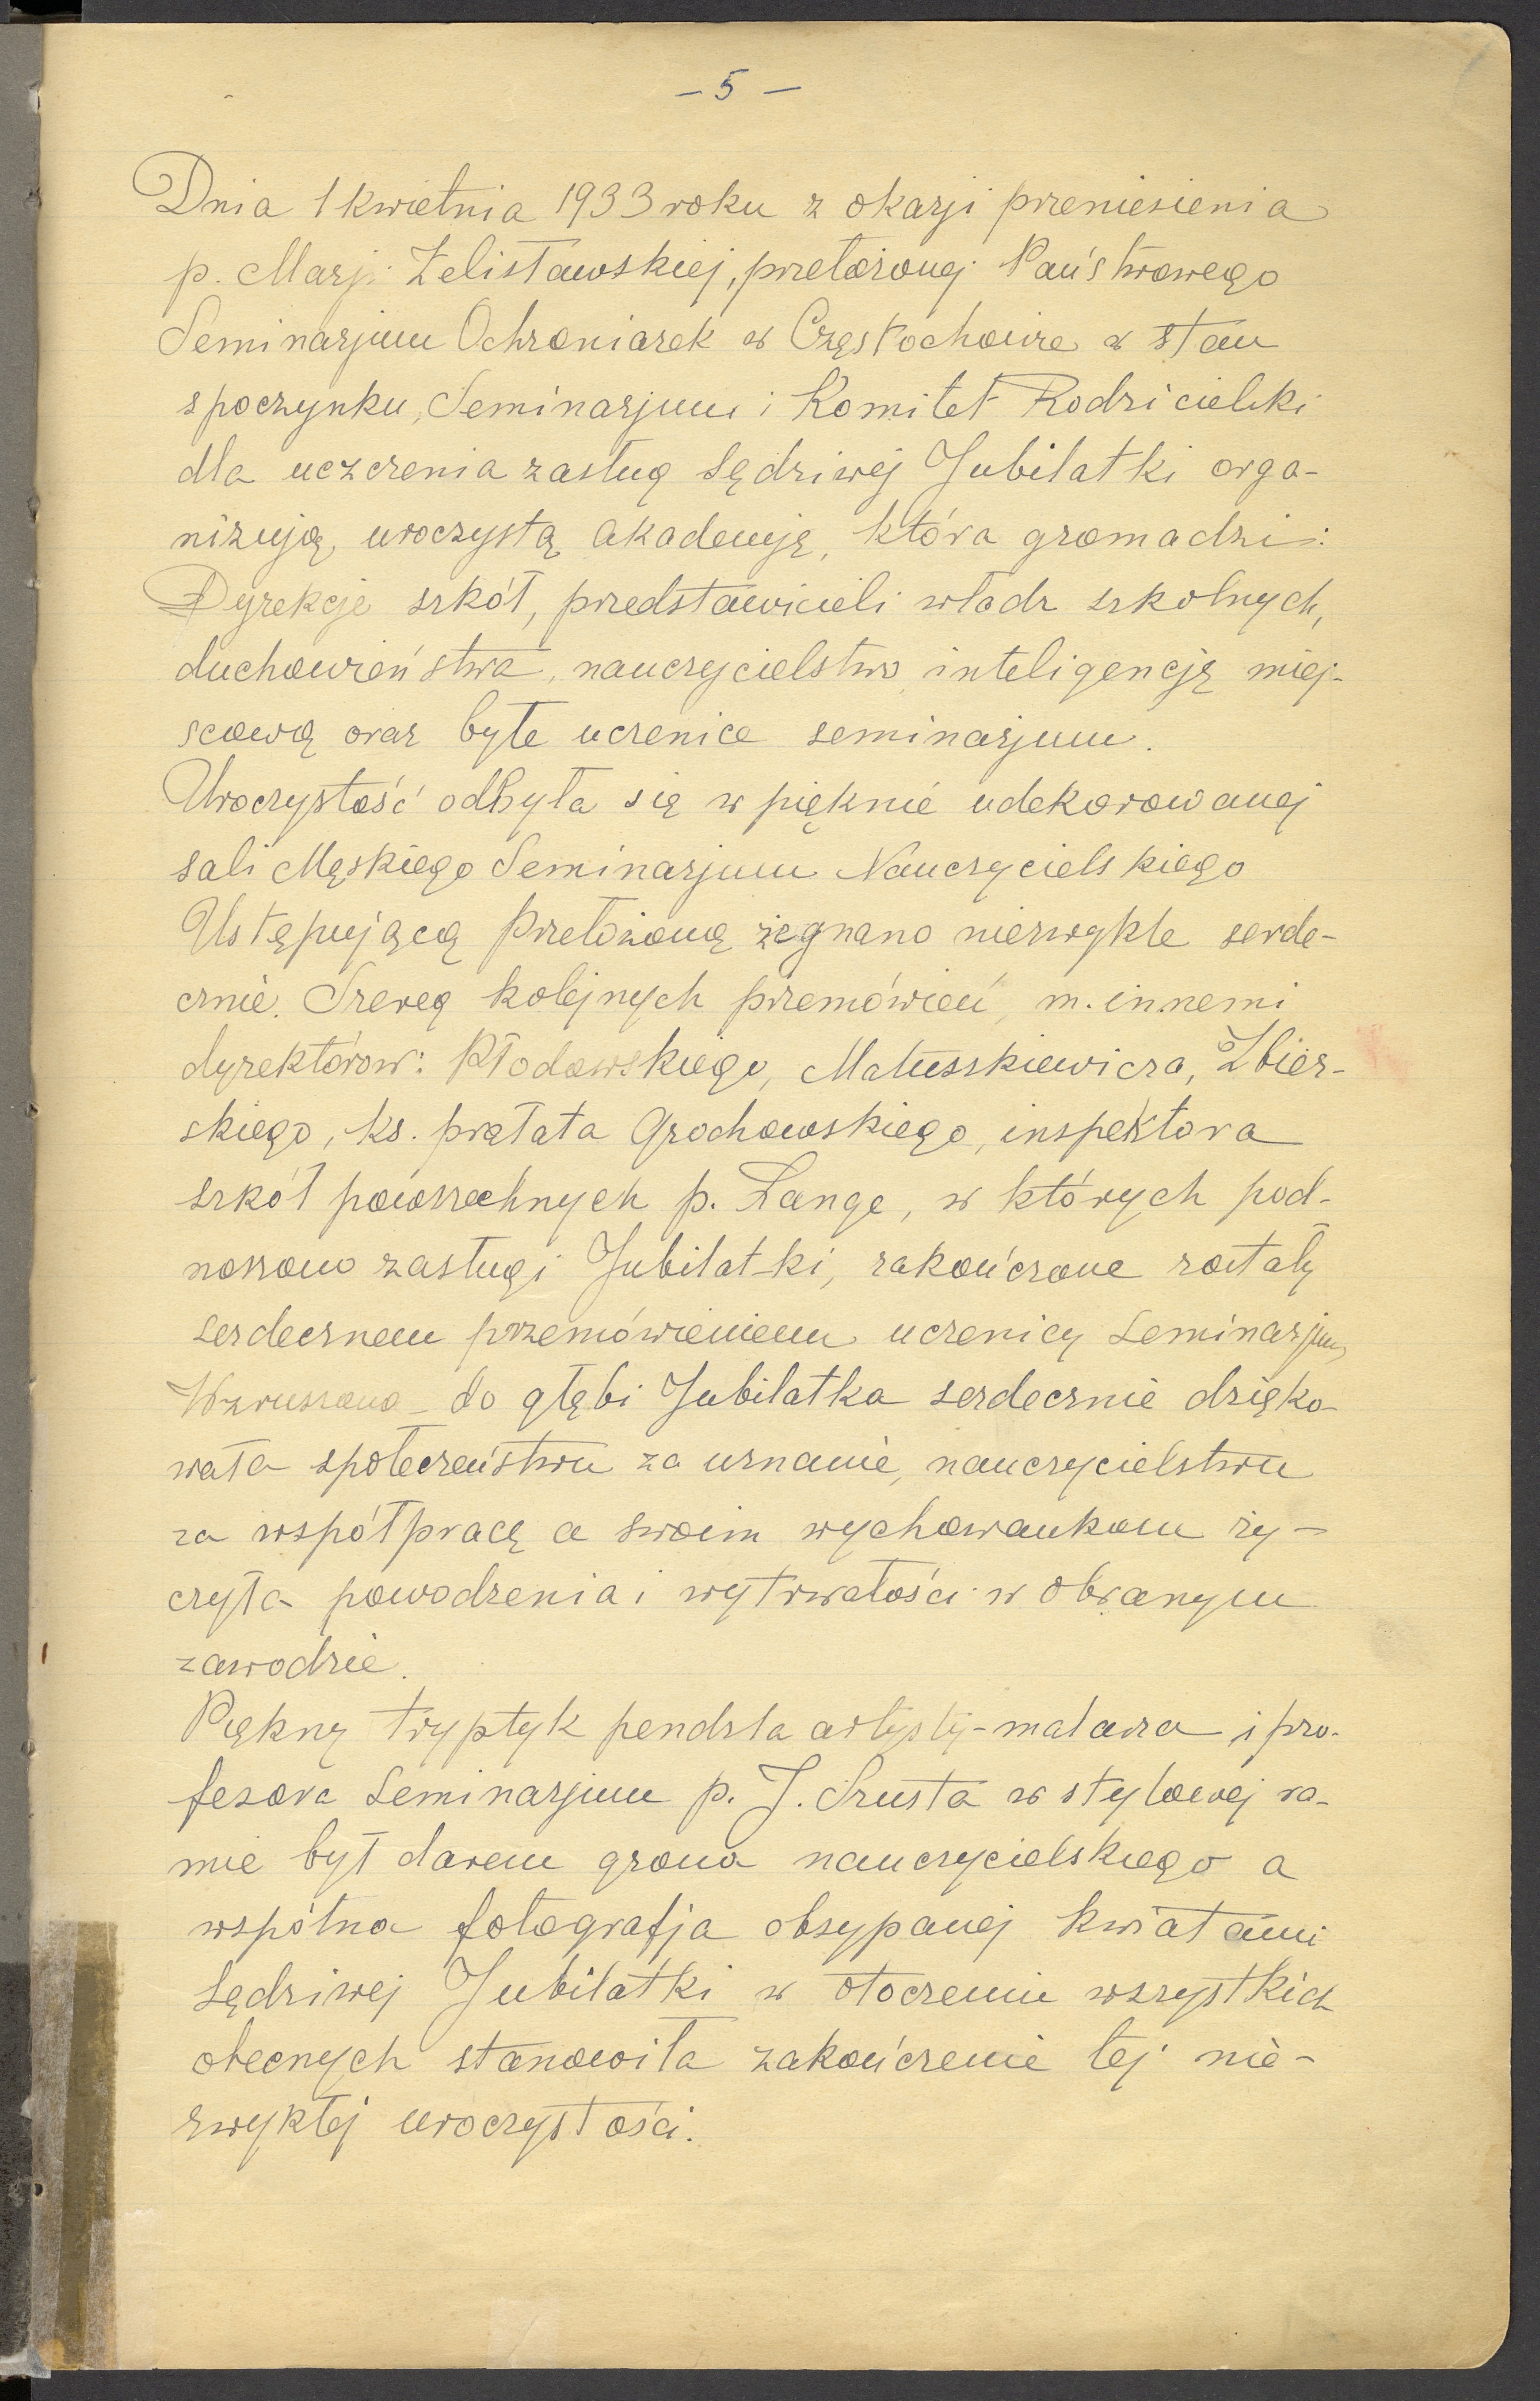 – 5 –
Dnia 1 kwietnia 1933 roku z okazji przeniesienia
p. Marji Żelisławskiej, przełożonej Państwowego
Seminarjum Ochroniarek w Częstochowie w stan
spoczynku, Seminarjum i Komitet Rodzicielski
dla uczczenia zasług sędziwej Jubilatki orga-
nizują uroczystą akademję, która gromadzi:
Dyrekcje szkół, przedstawicieli władz szkolnych,
duchowieństwa, nauczycielstwo, inteligencję miej-
scową oraz byłe uczenice seminarjum.
Uroczystość odbyła się w pięknie udekorowanej
sali Męskiego Seminarjum Nauczycielskiego
Ustępującą Przełożoną żegnano niezwykle serde-
cznie. Szereg kolejnych przemówień, m. innemi
dyrektorów: Płodowskiego, Matuszkiewicza, Zbier-
skiego, ks. prałata Grochowskiego, inspektora
szkół powszechnych p. Lange, w których pod-
noszono zasługi Jubilatki, zakończone zostały
serdecznem przemówieniem uczenicy seminarjum,
Wzruszona do głębi Jubilatka serdecznie dzięko-
wała społeczeństwu za uznanie, nauczycielstwu
za współpracę a swoim wychowankom ży-
czyła powodzenia i wytrwałości w obranym
zawodzie.
Piękny tryptyk pendzla artysty-malarza i pro-
fesora seminarjum p. J. Szusta w stylowej ra-
mie był darem grona nauczycielskiego a
wspólna fotografja obsypanej kwiatami
sędziwej Jubilatki w otoczeniu wszystkich
obecnych stanowiła zakończenie tej nie-
zwykłej uroczystości.